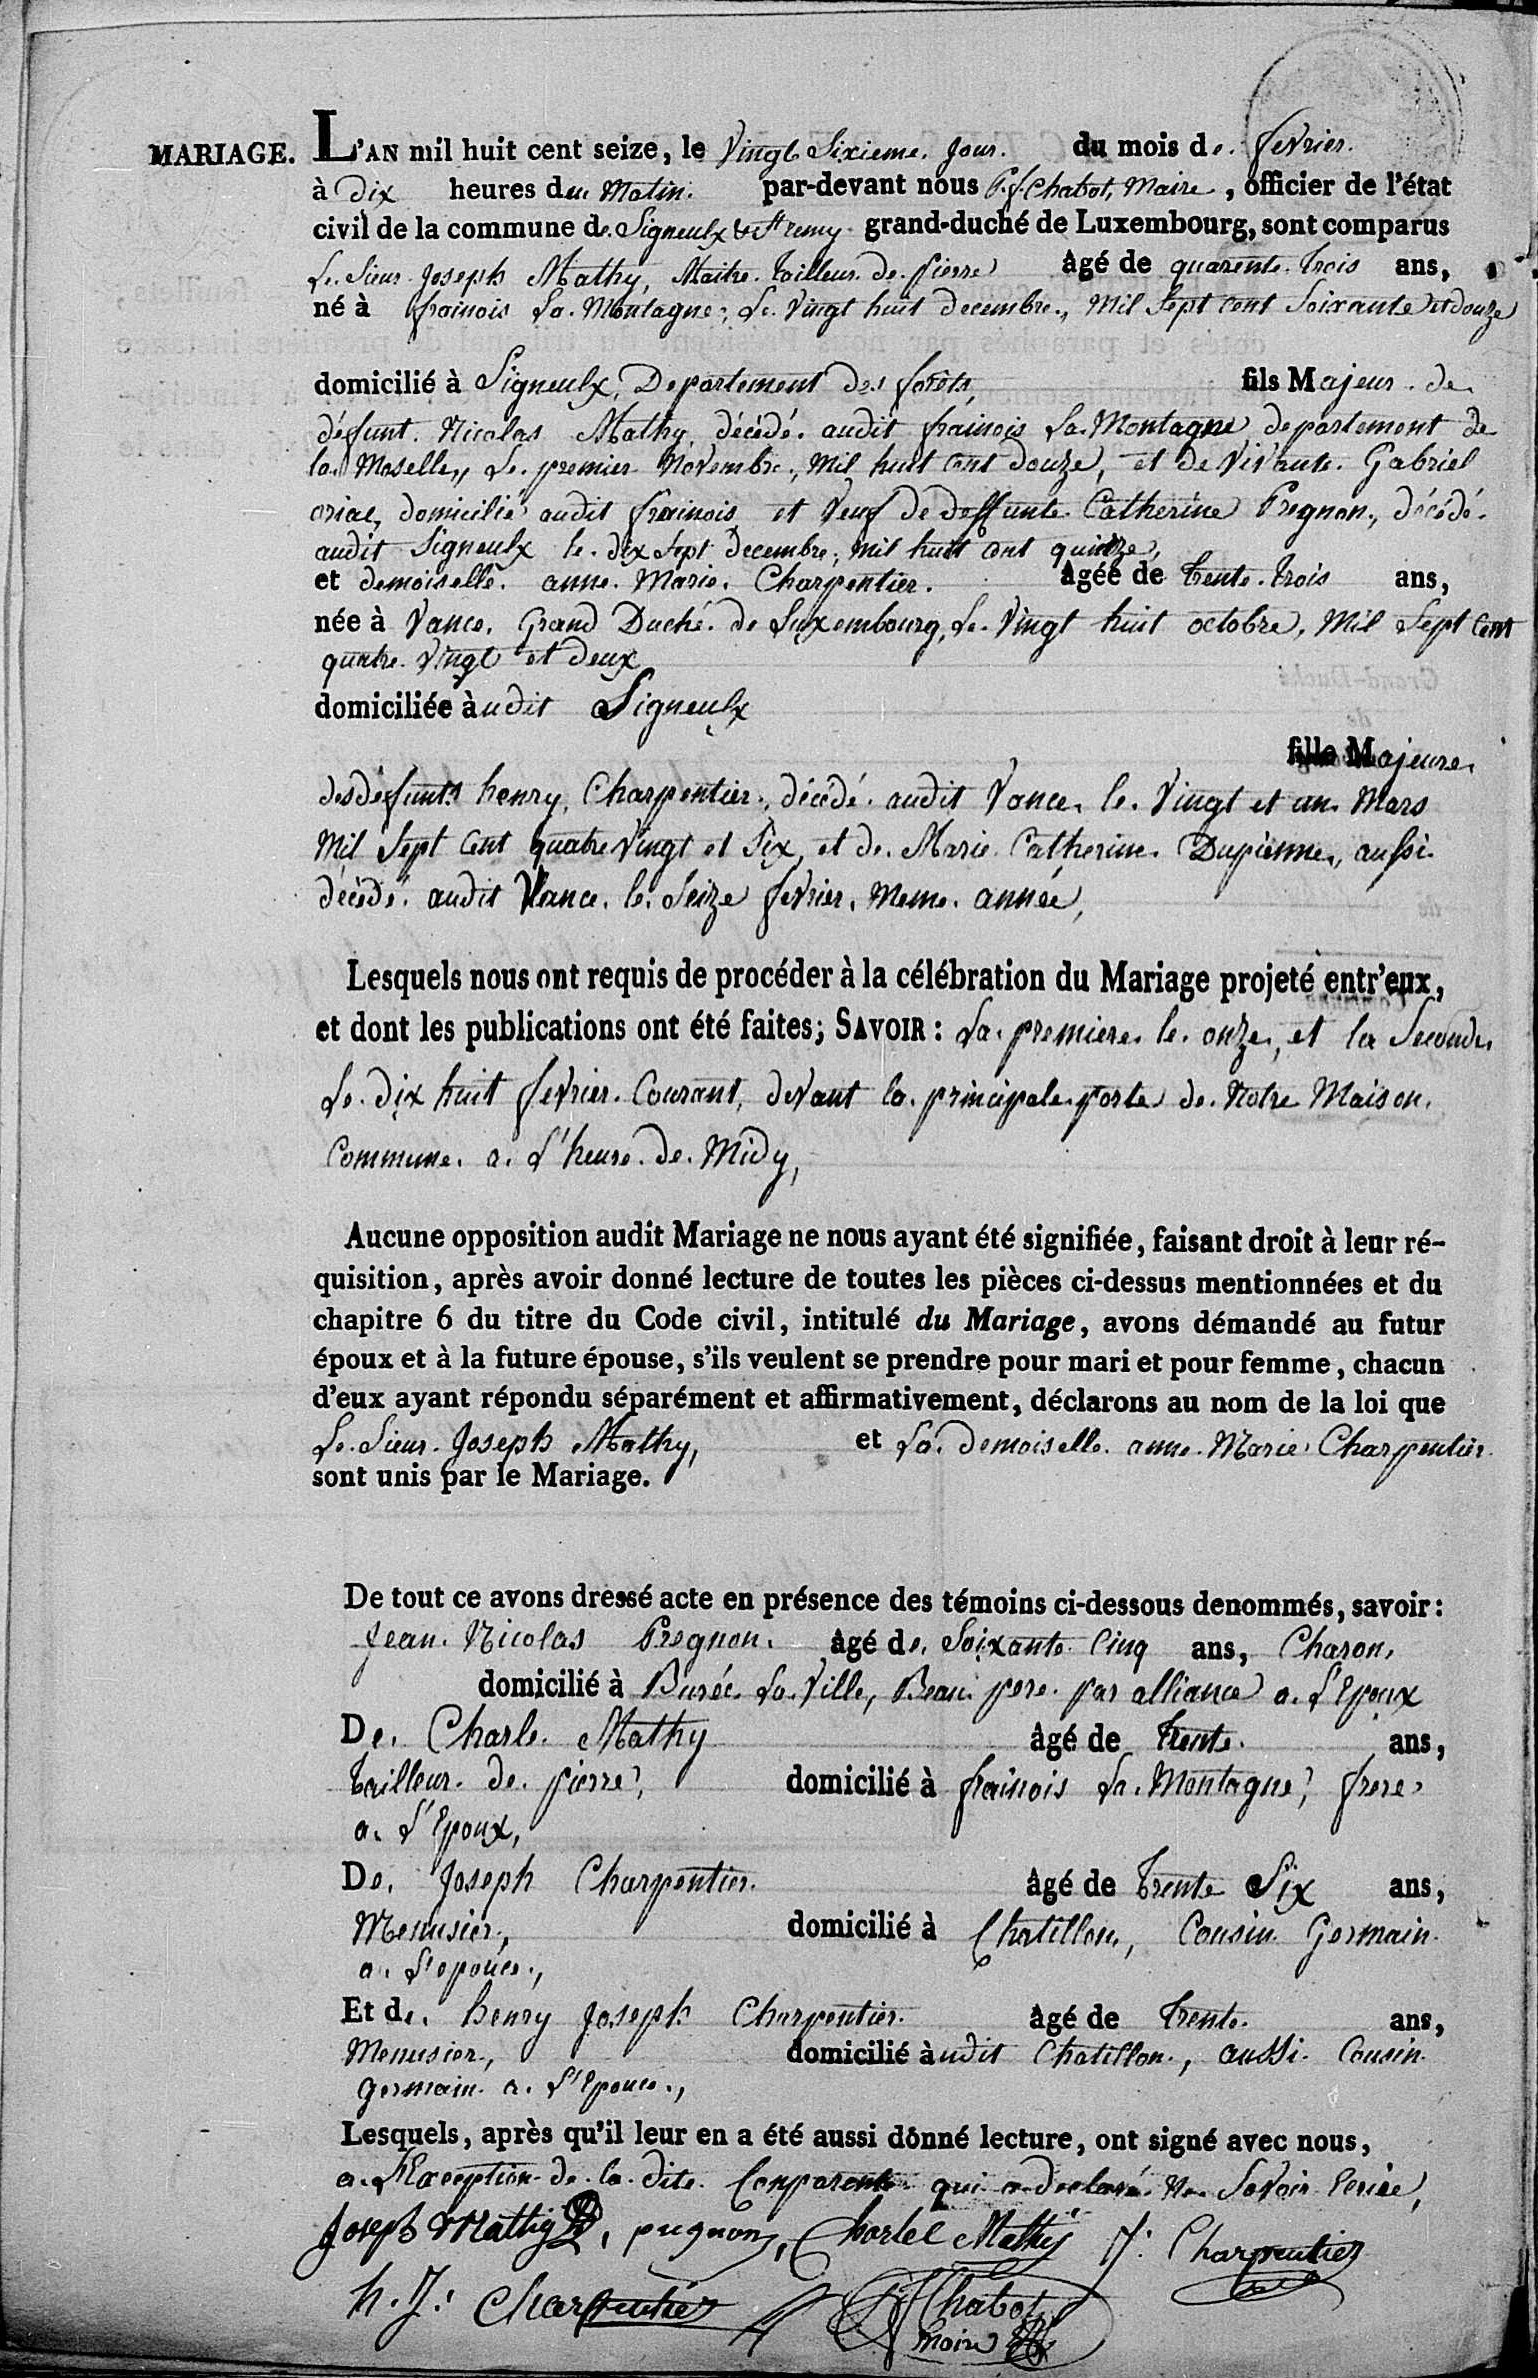 MARIAGE. L'AN mil huit cent seize, le Vingt Sixieme. Jour. du mois de. fevrier.
à dix heures du Matin. par-devant nous P. J. Chabot, Maire, officier de l'état
civil de la commune de. Signeulx & St remy grand-duché de Luxembourg, sont comparus
Le. Sieur Joseph Mathy, Maitre. tailleur de. pierre âgé de quarente. trois ans,
né à frainois La. Montagne, Le. Vingt huit decembre, Mil Sept cent Soixante et douze
domicilié à Signeulx, Departement des forêts, fils Majeur de
défunt. Nicolas Mathy, décédé. audit frainois La. Montagne departement de
la. Moselle, Le. premier Novembre, Mil huit cent douze, et de Vivante. Gabriel
domicilié audit frainois et Veuf de deffunte Catherine Pregnon, décédé.
audit Signeulx le. dix Sept Decembre, mil huit cent quinze,
et demoiselle. anne. Marie. Charpentier. âgée de trente. trois ans,
née à Vance. Grand Duché. de Luxembourg, Le. Vingt huit octobre, Mil Sept Cent
quatre. Vingt et deux
domiciliée àudit Signeulx
fille Majeure
des défunts henry, Charpentier, décédé. audit Vance. le. Vingt et un. Mars
Mil Sept Cent quatre Vingt et Six, et de. Marie Catherine. Dupienne, aussi
décédé. audit Vance. le. Seize fevrier. Meme. année,
Lesquels nous ont requis de procéder à la célébration du Mariage projeté entr'eux,
et dont les publications ont été faites; SAVOIR: La. premiere. le. onze, et la Seconde
Le. dix huit fevrier. Courant, devant la. principale porte de. Notre Maison.
Commune. a. L'heure. de. Midy,
Aucune opposition audit Mariage ne nous ayant été signifiée, faisant droit à leur ré-
quisition, après avoir donné lecture de toutes les pièces ci-dessus mentionnées et du
chapitre 6 du titre du Code civil, intitulé du Mariage, avons démandé au futur
époux et à la future épouse, s'ils veulent se prendre pour mari et pour femme, chacun
d'eux ayant répondu séparément et affirmativement, déclarons au nom de la loi que
Le. Sieur. Joseph Mathy, et La. demoiselle. anne. Marie Charpentier
sont unis par le Mariage.
De tout ce avons dressé acte en présence des témoins ci-dessous denommés, savoir:
Jean. Nicolas Pregnon. âgé de. Soixante Cinq ans, Charon,
domicilié à Buré. La. Ville, Beau pere. par alliance a. L'Epoux
De. Charle. Mathy âgé de trente. ans,
tailleur. de. pierre, domicilié à frainois La. Montagne, frere
a. L'Epoux,
De. Joseph Charpentier. âgé de trente Six ans,
Menusier, domicilié à Chatillon, Cousin Germain.
a. L'epouce.,
Et de. henry Joseph Charpentier. âgé de trente. ans,
Menusier, domicilié àudit Chatillon, aussi. Cousin
Germain. a. L'Epouce.,
Lesquels, après qu'il leur en a été aussi donné lecture, ont signé avec nous,
a. L'Exception de. la. dite. Comparente qui a declaré. Ne. Savoir Ecrire,
Joseph Mathy, pregnon, Charle Mathy J: Charpentier
h. J: Charpentier PJChabot
maire